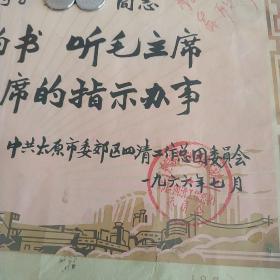 同志
的书 听毛主席
席的指示办事
中共太原市委郊区四清工作总团委员会
一九六六年七月